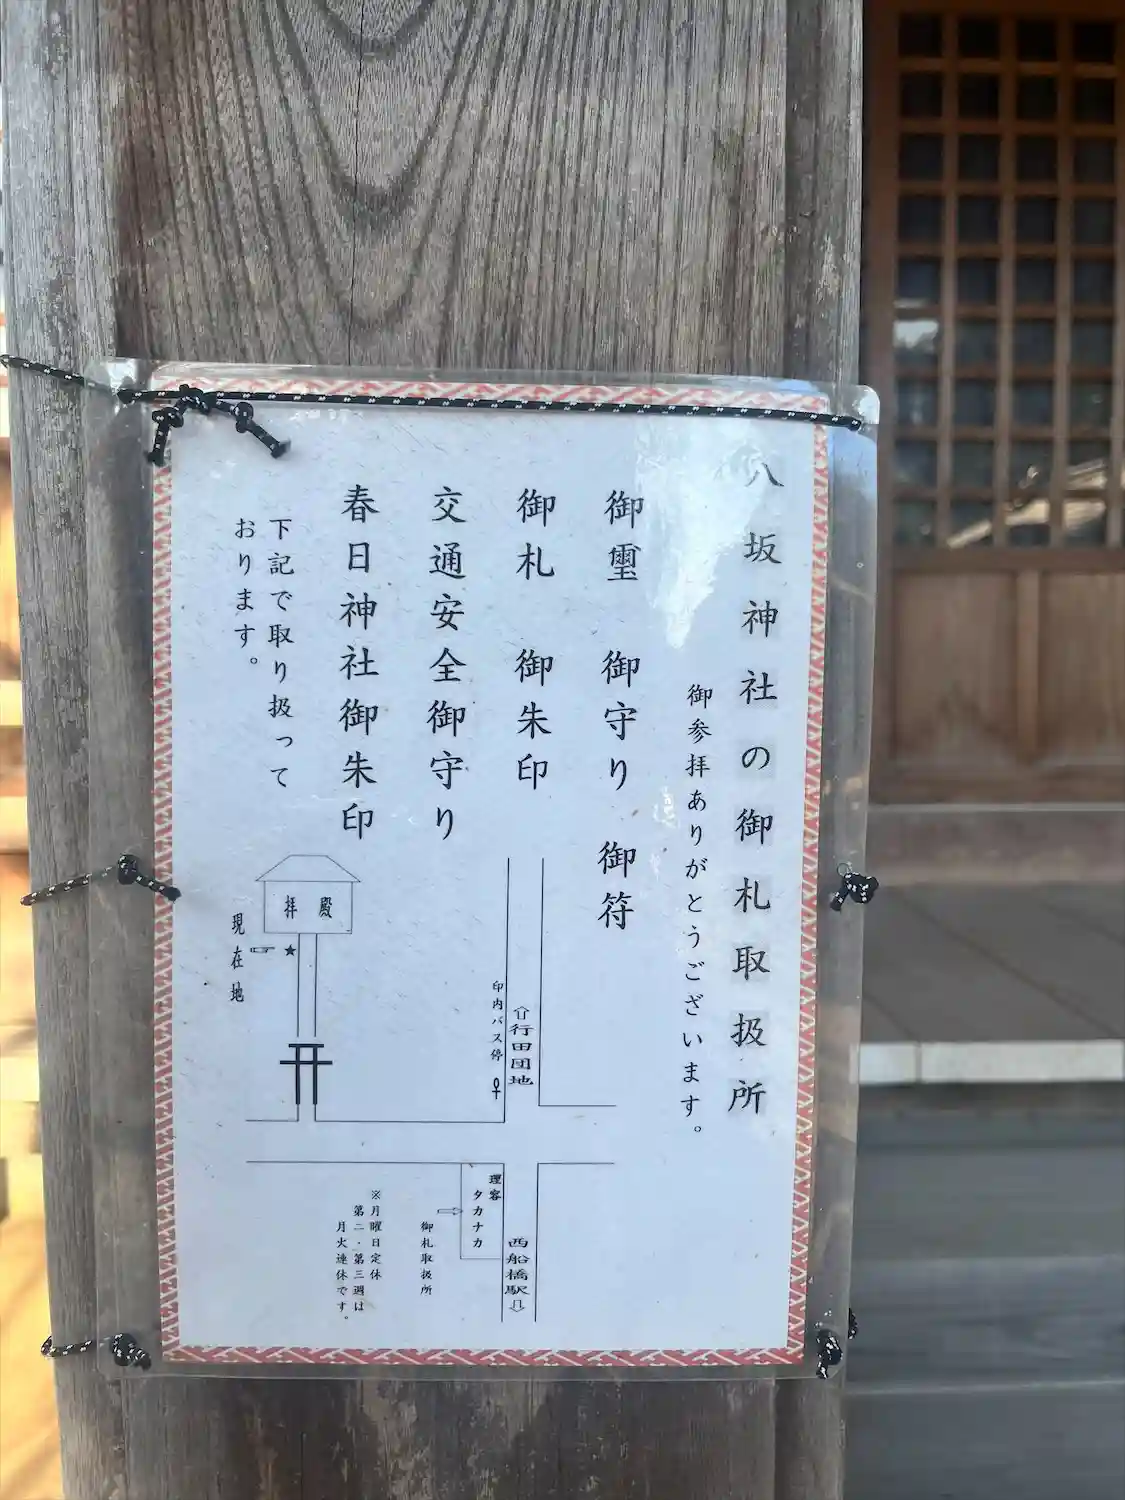 八坂神社の御札取扱所
御参拝ありがとうございます。
御璽　御守り　御符
御札　御朱印
交通安全御守り
春日神社御朱印
下記で取り扱って
おります。
拝殿
現在地
☞★
⇧行田団地
印内バス停
理容
タカナカ
⇨
御札取扱所
西船橋駅⇩
※月曜日定休
第二・第三週は
月火連休です。